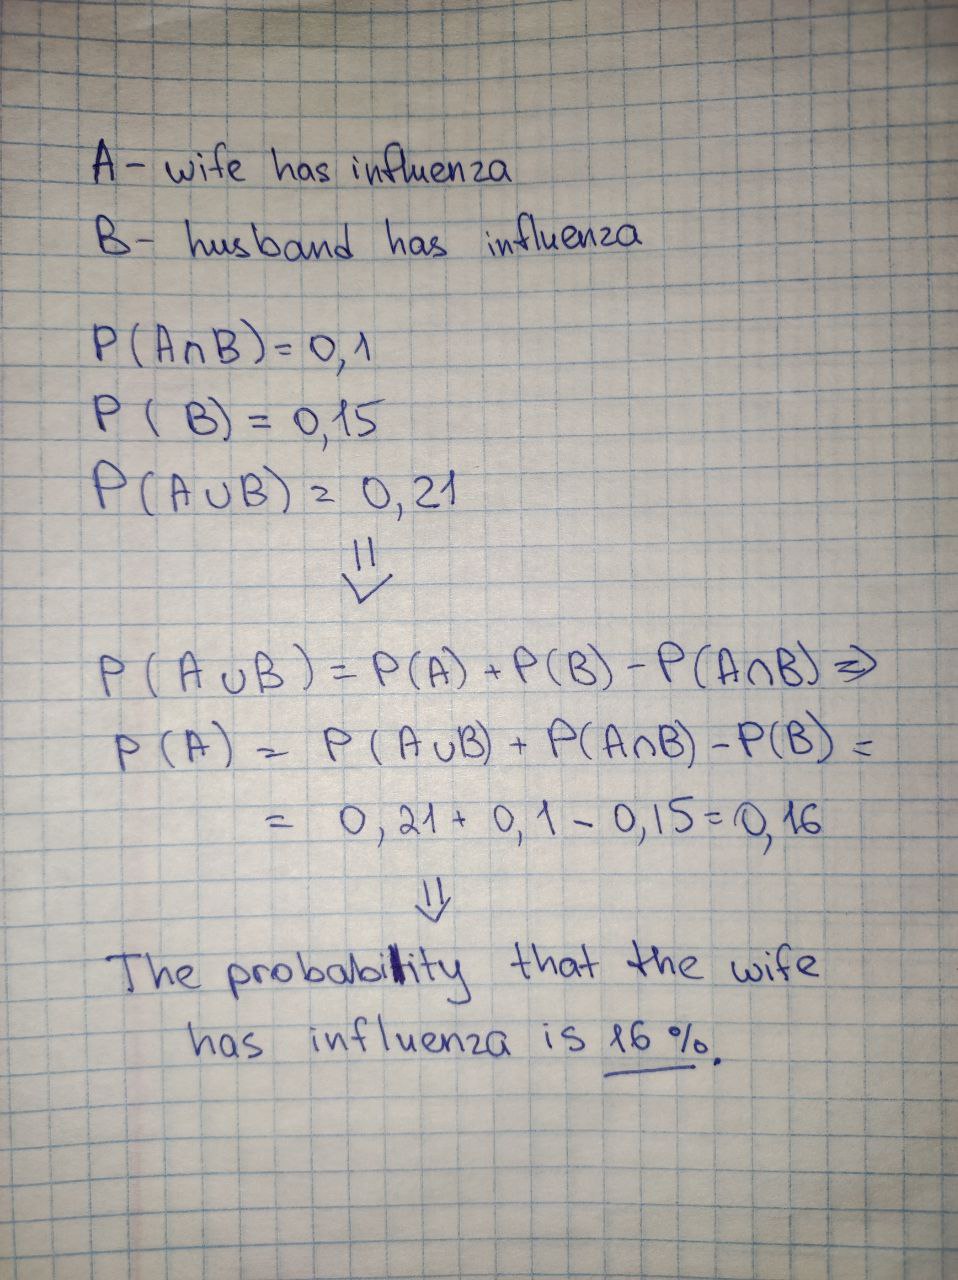 A - wife has influenza
B - husband has influenza
P(A∩B) = 0,1
P(B) = 0,15
P(A∪B) = 0,21
⇓
P(A∪B) = P(A) + P(B) - P(A∩B) ⇒
P(A) = P(A∪B) + P(A∩B) - P(B) =
= 0,21 + 0,1 - 0,15 = 0,16
⇓
The probability that the wife
has influenza is 16 %.